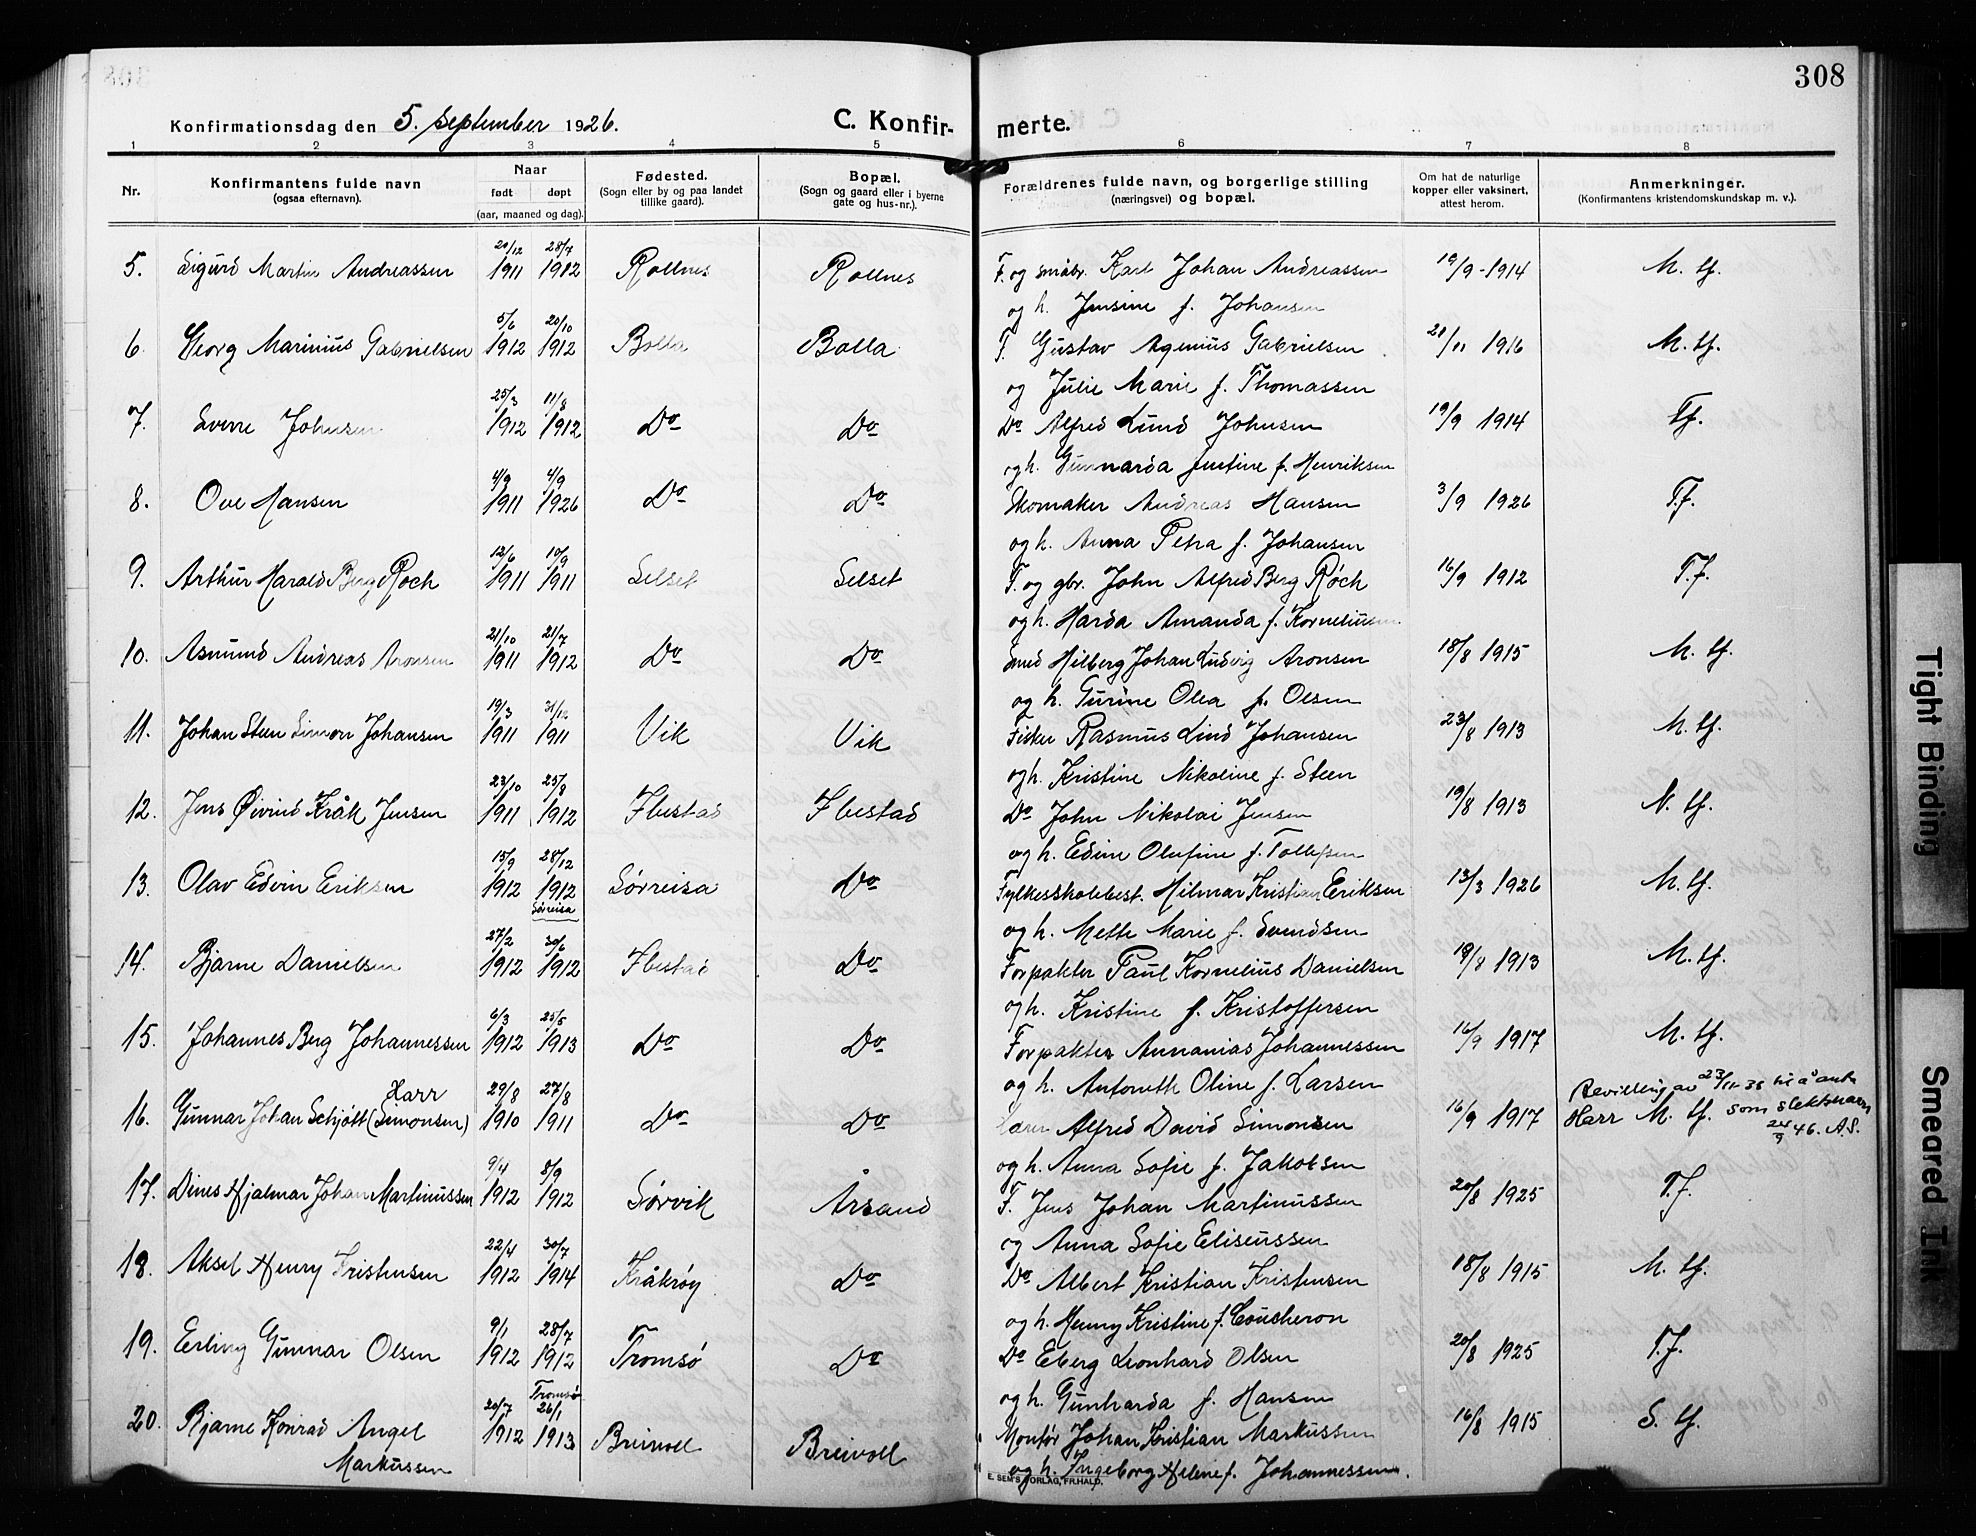 308
Konfirmationsdag den 5. september 1926.
C. Konfir- merte.
1 2 3 4 5 6 7 8
Nr.
Konfirmantens fulde navn
(ogsaa efternavn).
Naar
født døpt
(aar, maaned og dag).
Fødested.
(Sogn eller by og paa landet
tillike gaard).
Bopæl.
(Sogn og gaard eller i byerne
gate og hus-nr.).
Forældrenes fulde navn, og borgerlige stilling
(næringsvei) og bopæl.
Om hat de naturlige
kopper eller vaksinert,
attest herom.
Anmerkninger.
(Konfirmantens kristendomskundskap m. v.).
5. Sigurd Martin Andreassen 20/12 1911 28/7 1912 Rollnes Rollnes F. og småbr. Karl Johan Andreassen 19/9-1914 M. tf.
og h. Jensine f. Johansen
6. Georg Marinius Gabrielsen 5/6 1912 20/10 1912 Bolla Bolla F. Gustav Agenius Gabrielsen 21/11 1916 M. tf.
og Julie Marie f. Thomassen
7. Sverre Johnsen 25/3 1912 11/8 1912 Do Do Do Alfred Lund Johnsen 19/9 1914 Tf.
og h. Gunnarda Justine f. Henriksen
8. Ove Hansen 4/9 1911 4/9 1926 Do Do Skomaker Andreas Hansen 3/9 1926 T.f.
og h. Anna Petra f. Johansen
9. Arthur Harald Berg Røch 12/6 1911 10/9 1911 Selset Selset F. og gbr. John Alfred Berg Røch 16/9 1912 T.f.
og h. Harda Amanda f. Korneliussen
10. Asmund Andreas Aronsen 21/10 1911 21/7 1912 Do Do Smed Hilberg Johan Ludvig Aronsen 18/8 1915 M. tf.
og h. Gurine Olea f. Olsen
11. Johan Steen Simon Johansen 19/3 1911 31/12 1911 Vik Vik Fisker Rasmus Lind Johansen 23/8 1913 M. tf.
og h. Kristine Nikoline f. Steen
12. Jens Øivind Kråk Jensen 23/10 1911 25/8 1912 Ibestad Ibestad Do John Nikolai Jensen 19/8 1913 N. tf.
og h. Edine Olufine f. Tollefsen
13. Olav Edvin Eriksen 15/9 1912 28/12 1912 Sørreisa Sørreisa Do Fylkesskolebest. Hilmar Kristian Eriksen 13/3 1926 M. tf.
og h. Mette Marie f. Svendsen
14. Bjarne Danielsen 27/2 1912 30/6 1912 Ibestad Do Forpakter Paul Kornelius Danielsen 19/8 1913 M. tf.
og h. Kristine f. Kristoffersen
15. Johannes Berg Johannessen 6/3 1912 25/5 1913 Do Do Forpakter Annanias Johannessen 16/9 1917 M. tf.
og h. Antonette Oline f. Larsen
16. Gunnar Johan Schjøtt (Simonsen) Harr 29/8 1910 27/8 1911 Do Do Lærer Alfred David Simonsen 16/9 1917 Bevilling av 23/11-38 til å anta
Harr M. tf. som slektsnavn
24/9 46. A.S.
og h. Anna Sofie f. Jakobsen
17. Dines Hjalmar Johan Martinussen 9/4 1912 8/9 1912 Sørvik Årsand F. Jens Johan Martinussen 20/8 1925 T.f.
og Anna Sofie Eliseussen
18. Aksel Henry Kristensen 22/4 1912 30/7 1914 Kråkrøy Do Do Albert Kristian Kristensen 18/8 1915 M. tf.
og h. Henny Kristine f. Coucheron
19. Erling Gunnar Olsen 9/1 1912 28/7 1912 Tromsø Tromsø Do Do Eberg Leonhard Olsen 20/8 1925 T.f.
og h. Gunharda f. Hansen
20. Bjarne Konrad Angel Markussen 20/7 1912 26/1 1913 Breivoll Breivoll Montør Johan Kristian Markussen 16/8 1915 S. tf.
og h. Ingeborg Helene f. Johannessen.
E. SEM'S FORLAG, FR.HALD.
Tight Binding
Smeared Ink